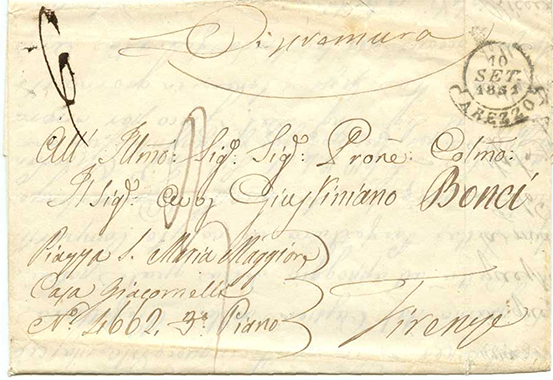 Di premura
10
SET.
1851
AREZZO
All' Illmo: Sig: Sig: Prone: Colmo:
Il Sig: Cav: Giustiniano Bonci
Piazza S. Maria Maggiore
Casa Giacomelli
No. 4662, 3o. Piano
Firenze